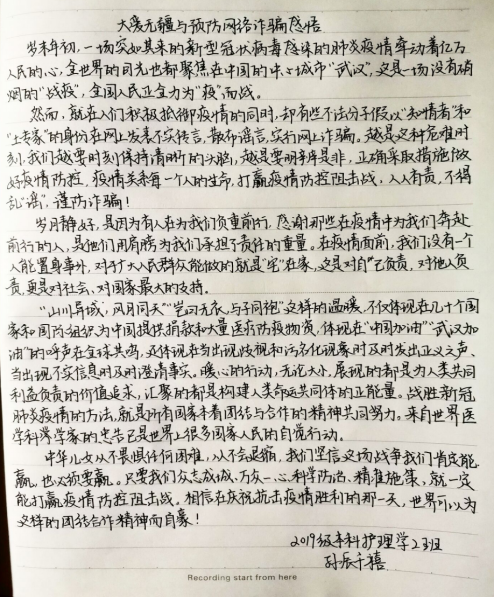 大爱无疆与预防网络诈骗感悟
岁末年初，一场突如其来的新型冠状病毒感染的肺炎疫情牵动着亿万
人民的心，全世界的目光也都聚焦在中国的中心城市“武汉”，这是一场没有硝
烟的“战疫”，全国人民正全力为“疫”而战。
然而，就在人们积极抵御疫情的同时，却有些不法分子假以“知情者”和
“专家”的身份在网上发表不实传言，散布谣言，实行网上诈骗。越是这种危难时
刻，我们越要时刻保持清晰的头脑，越是要明辨是非，正确采取措施做
好疫情防控，疫情关系每一个人的生命，打赢疫情防控阻击战，人人有责，不得
乱“谣”，谨防诈骗！
岁月静好，是因为有人在为我们负重前行，感谢那些在疫情中为我们奔赴
前行的人，是他们用肩膀为我们承担了责任的重量。在疫情面前，我们没有一个
人能置身事外，对于广大人民群众能做的就是“宅”在家，这是对自己负责，对他人负
责，更是对社会、对国家最大的支持。
“山川异域，风月同天”“岂曰无衣，与子同袍”这样的温暖，不仅体现在几十个国
家和国际组织为中国提供捐款和大量医疗防疫物资，体现在“中国加油”“武汉加
油”的呼声在全球共鸣，还体现在当出现歧视和污名化现象时及时发出正义之声、
当出现不实信息时及时澄清事实。暖心的行动，无论大小，展现的都是为人类共同
利益负责的价值追求，汇聚的都是构建人类命运共同体的正能量。战胜新冠
肺炎疫情的方法，就是所有国家本着团结与合作的精神共同努力。来自世界医
学科学家的忠告已是世界上很多国家人民的自觉行动。
中华儿女从不畏惧任何困难，从不会退缩，我们坚信这场战争我们肯定能
赢，也必须要赢。只要我们众志成城、万众一心、科学防治、精准施策，就一定
能打赢疫情防控阻击战。相信在庆祝抗击疫情胜利的那一天，世界可以为
这样的团结合作精神而自豪！
2019级本科护理学2班
孙辰千禧
Recording start from here